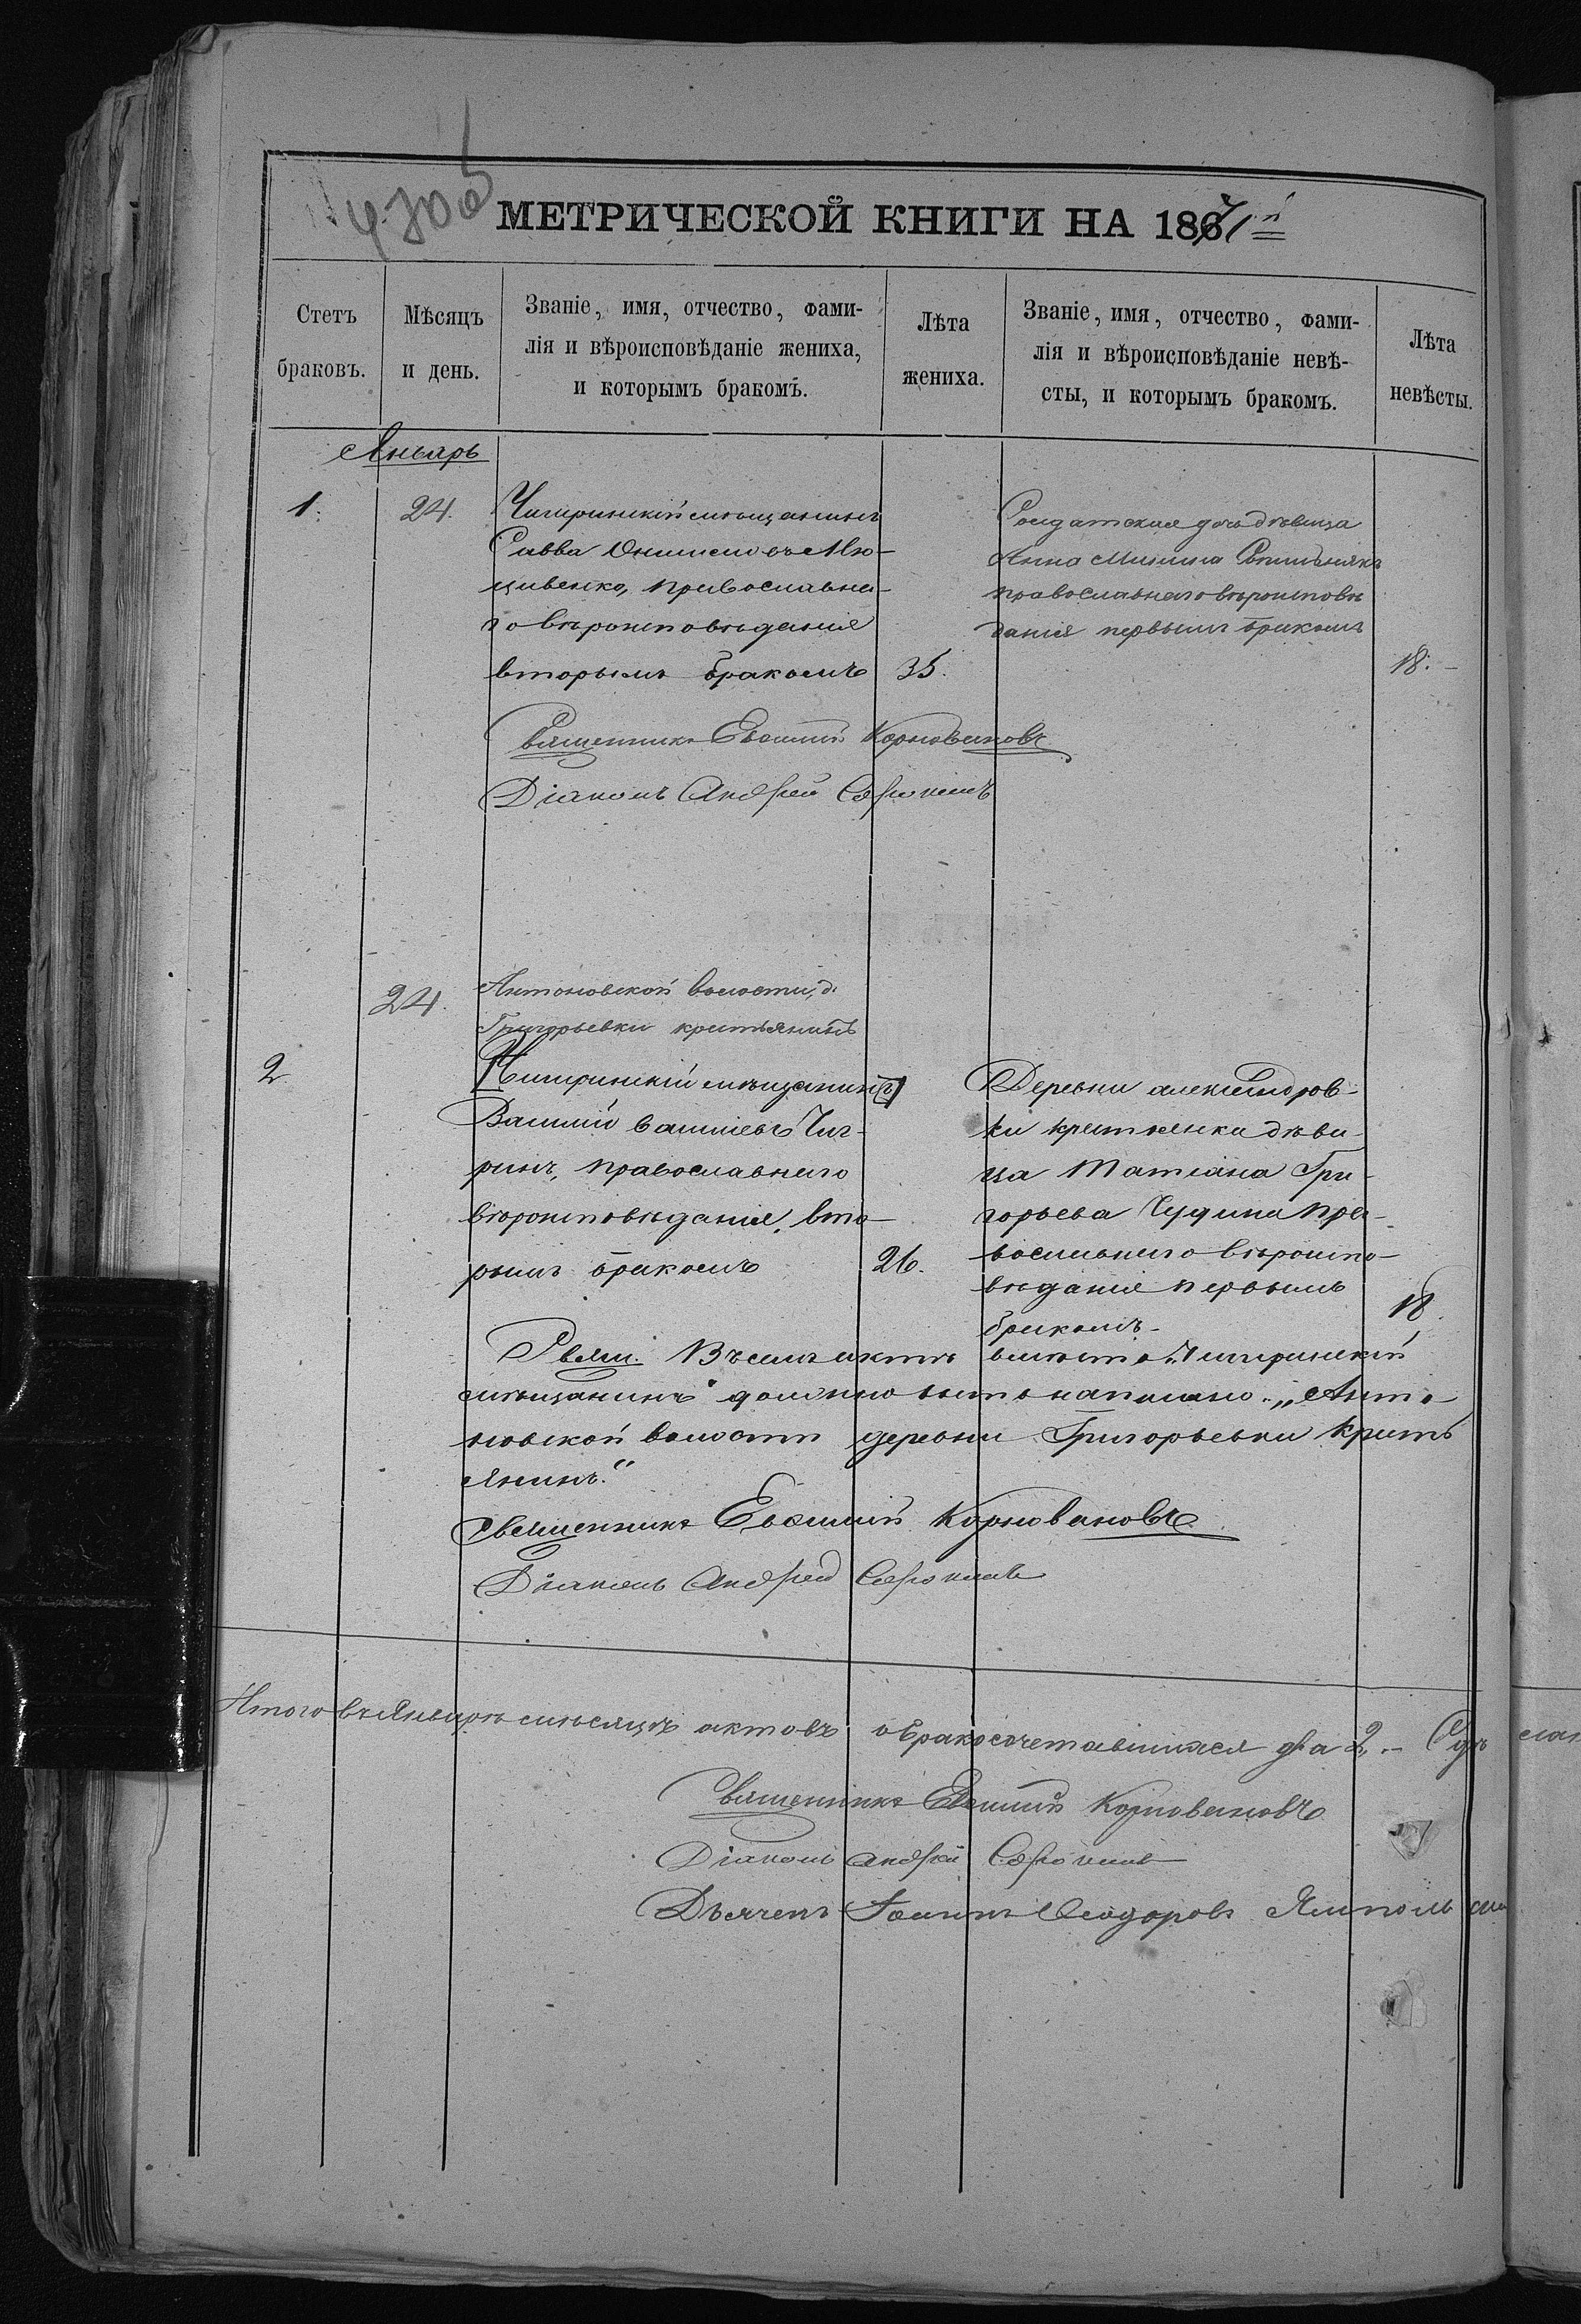 430 об
МЕТРИЧЕСКОЙ КНИГИ НА 1871й
Счетъ браковъ.
Мѣсяцъ и день.
Званіе, имя, отчество, фами-
лія и вѣроисповѣданіе жениха,
и которымъ бракомъ.
Лѣта жениха.
Званіе, имя, отчество, фами-
лія и вѣроисповѣданіе невѣ-
сты, и которымъ бракомъ.
Лѣта невѣсты.
Январь
1. 24.
Чигиринскій мѣщанинъ
Савва Онисимовъ
православна-
го вѣроисповѣданія
вторымъ бракомъ 35.
Солдатская дочь дѣвица
Анна Минина
православнаго вѣроисповѣ
данія первымъ бракомъ
18.
Священникъ Евѳимій Корновановъ
Діаконъ Андрей Сорокинъ
2 24.
Антоновской волости, д.
Григорьевки крестьянинъ
Чигиринскій мѣщанинъ
Василій Васильевъ Чиг-
ринъ, православнаго
вѣроисповѣданія, вто-
рымъ бракомъ 26.
Деревни Александров-
ки крестьянка дѣви-
ца Татіана Гри-
горьева Чудина пра-
вославнаго вѣроиспо-
вѣданія первымъ
бракомъ 18.
Въ семъ актѣ вмѣсто „Чигиринскій
мѣщанинъ" должно быть написано: „Анто-
новской волости деревни Григорьевки Кресть
янинъ."
Священникъ Евѳимій Корновановъ
Діаконъ Андрей Сорокинъ
Итого въ Январѣ мѣсяцѣ актовъ о бракосочетавшихся два 2.
Священникъ Евѳимій Корновановъ
Діаконъ Андрей Сорокинъ
Дьячекъ Іоаннъ Ѳеодоровъ Ямполь